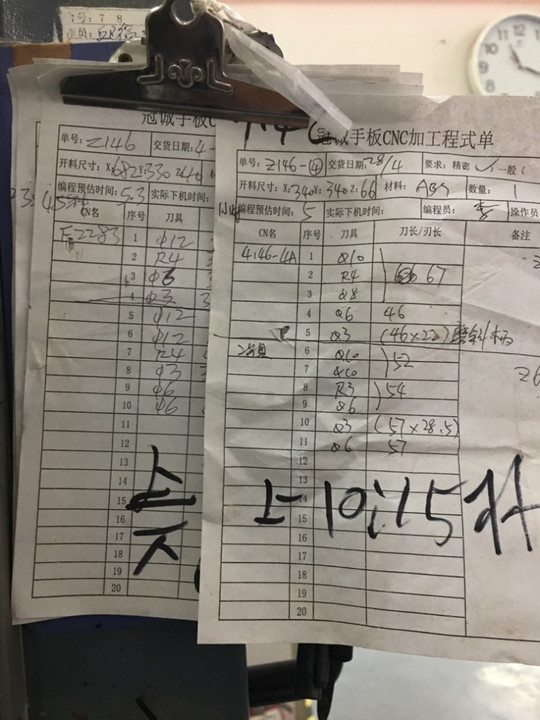 号: 7 8
冠诚手板C
单号: Z146 交货日期: 4-
开料尺寸: X:682Y:330
编程预估时间: 5.3 实际下机时间:
CN名 序号 刀具
F2283 1 Φ12
2 R4
3 Φ3
4 Φ3
5 Φ12
6 Φ12
7 R4
8 Φ3
9 Φ6
10 Φ6
11
12
13
14
15
16
17
18
19
20
冠诚手板CNC加工程式单
单号: Z146-④ 交货日期: 28/4 要求: 精密 ✓ 一般(
开料尺寸: X:340Y:340Z:66 材料: ABS 数量: 1
编程预估时间: 5 实际下机时间: 编程员: 李 操作员
CN名 序号 刀具 刀长/刃长 备注
4146-4A 1 Φ10
2 R4 67
3 Φ8
4 Φ6 46
5 Φ3 (46×22)
6 Φ10
7 Φ10 52
8 R3 54
9 Φ6
10 Φ3 (57×28.5)
11 Φ6 57
12
13
14
15
16
17
18
19
20
上 10:15